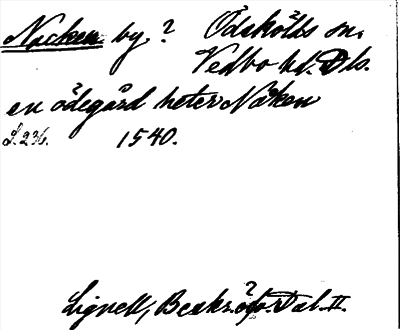 Nacken by. ? Ödskölts sn.
Vedbo hd. Dls.
en ödegård heter Näken
S. 236. 1540.
Lignell, Beskr. öfv. Dal. II.